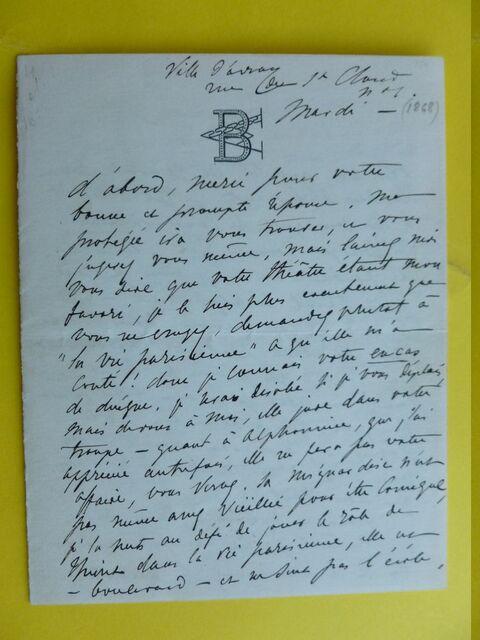 Ville d'avray
rue de St Cloud
n°
Mardi — (1868)
B
d'abord, merci pour votre
bonne et prompte réponse. Ma
protégée ira vous trouver, et vous
jugerez vous même, mais laissez moi
vous dire que votre théâtre étant mon
favori, je le suis plus que
vous ne croyez, demandez plutôt à
"la vie parisienne" ce qu'elle m'a
couté! donc je connais votre en cas
de duègne. je serai désolée si je vous déplais
mais de vous à moi, elle dans votre
troupe — quant à Alphonsine, que j'ai
apprécié autrefois, elle ne fera pas votre
affaire, vous verrez. sa mignardise n'est
pas même assez vieillie pour être comique,
je la mets au défi de jouer le rôle de
dans la vie parisienne, elle est
— boulevard — et ne sent pas l'école,